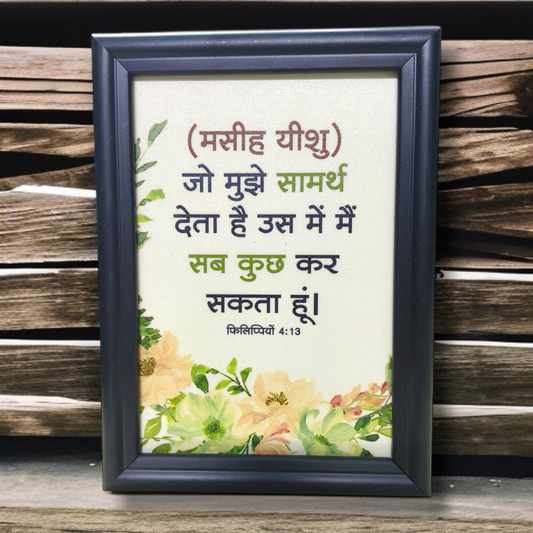 (मसीह यीशु)
जो मुझे सामर्थ
देता है उस में मैं
सब कुछ कर
सकता हूं।
फिलिप्पियों 4:13